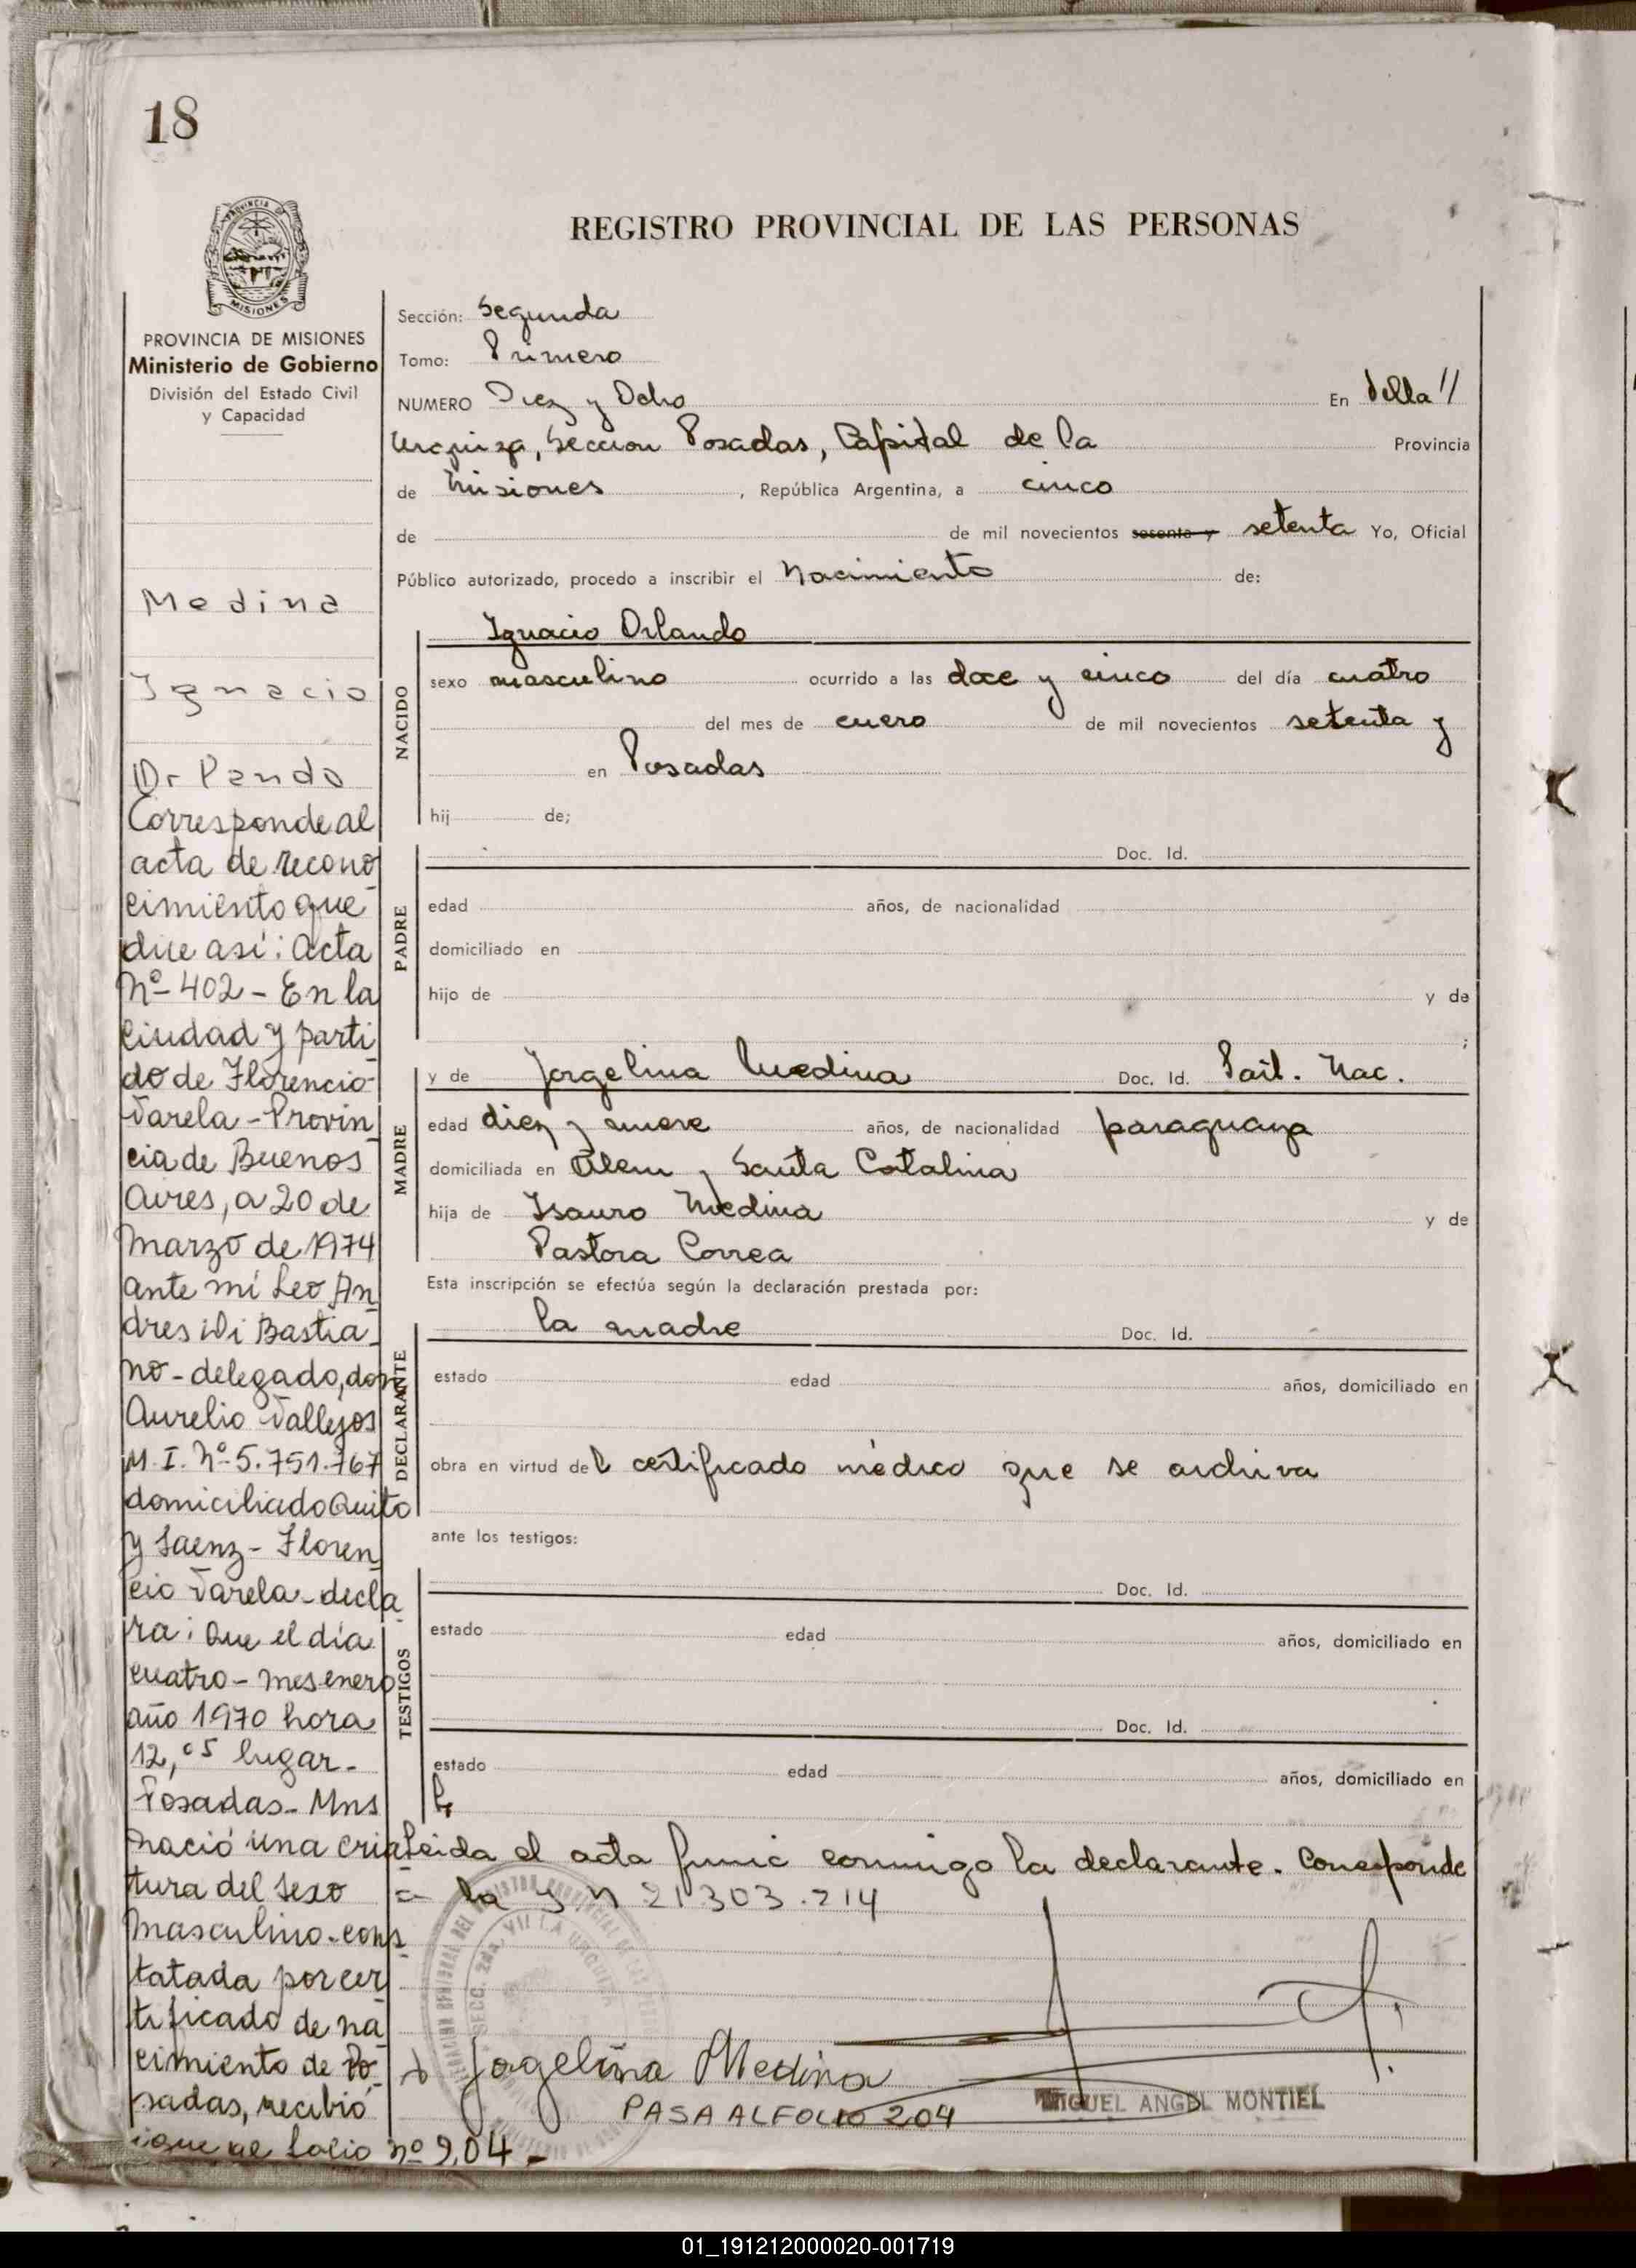 18
PROVINCIA
MISIONES
PROVINCIA DE MISIONES
Ministerio de Gobierno
División del Estado Civil
y Capacidad
REGISTRO PROVINCIAL DE LAS PERSONAS
Sección: Segunda
Tomo: Primero
NUMERO Diez y Ocho En Villa //
Urquiza, Seccion Posadas, Capital de la Provincia
de Misiones, República Argentina, a cinco
de de mil novecientos sesenta y setenta Yo, Oficial
Público autorizado, procedo a inscribir el Nacimiento de:
NACIDO
Ignacio Orlando
sexo masculino ocurrido a las doce y cinco del día cuatro
del mes de enero de mil novecientos setenta y
en Posadas
hij de;
PADRE
Doc. Id.
edad años, de nacionalidad
domiciliado en
hijo de y de
;
MADRE
y de Jorgelina Medina Doc. Id. Part. Nac.
edad diez y nueve años, de nacionalidad paraguaya
domiciliada en Alem y Santa Catalina
hija de Isauro Medina y de
Pastora Correa
Esta inscripción se efectúa según la declaración prestada por:
DECLARANTE
la madre Doc. Id.
estado edad años, domiciliado en
obra en virtud del certificado médico que se archiva
ante los testigos:
TESTIGOS
Doc. Id.
estado edad años, domiciliado en
Doc. Id.
estado edad años, domiciliado en
Leida el acta firma conmigo la declarante. Corresponde
la 21.303.214
Jogelina Medina
PASA AL FOLIO 204
MIGUEL ANGEL MONTIEL
Medina
Ignacio
Orlando
Corresponde al
acta de recono
cimiento que
dice así: Acta
Nº 402 - En la
Ciudad y parti
do de Florencio
Varela - Provin
cia de Buenos
Aires, a 20 de
Marzo de 1974
ante mí Leo An
dres Di Bastia
no - delegado, don
Aurelio Vallejos
M. I. Nº 5.751.767
domiciliado Quito
y Saenz - Floren
cio Varela - decla
ra: Que el día
cuatro - mes enero
año 1970 hora
12,05 lugar -
Posadas - Mns
nació una cria
tura del sexo
masculino - cons
tatada por cer
tificado de na
cimiento de Po
sadas, recibió
sigue al folio nº 204 -
01_191212000020-001719